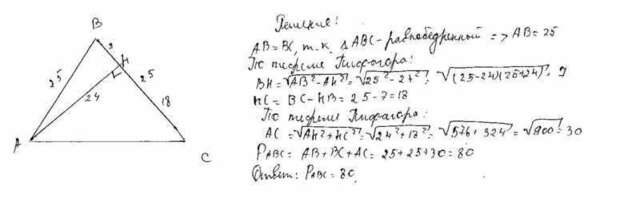 B
?
H
25
25
24
18
A
C
Решение:
AB=BC, т.к. △ABC-равнобедренный => AB=25
По теореме Пифагора:
BH=√AB²-AH²=√25²-24²=√(25-24)(25+24)=7
HC=BC-HB=25-7=18
По теореме Пифагора:
AC=√AH²+HC²=√24²+18²=√576+324=√900=30
PABC=AB+BC+AC=25+25+30=80
Ответ: PABC=80.